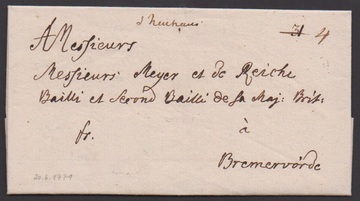 d'Neuhaus
31 4
A Messieurs
Messieurs Meyer et de Reiche
Bailli et second Bailli de Sa Maj: Brit:
fr.
à
Bremervörde